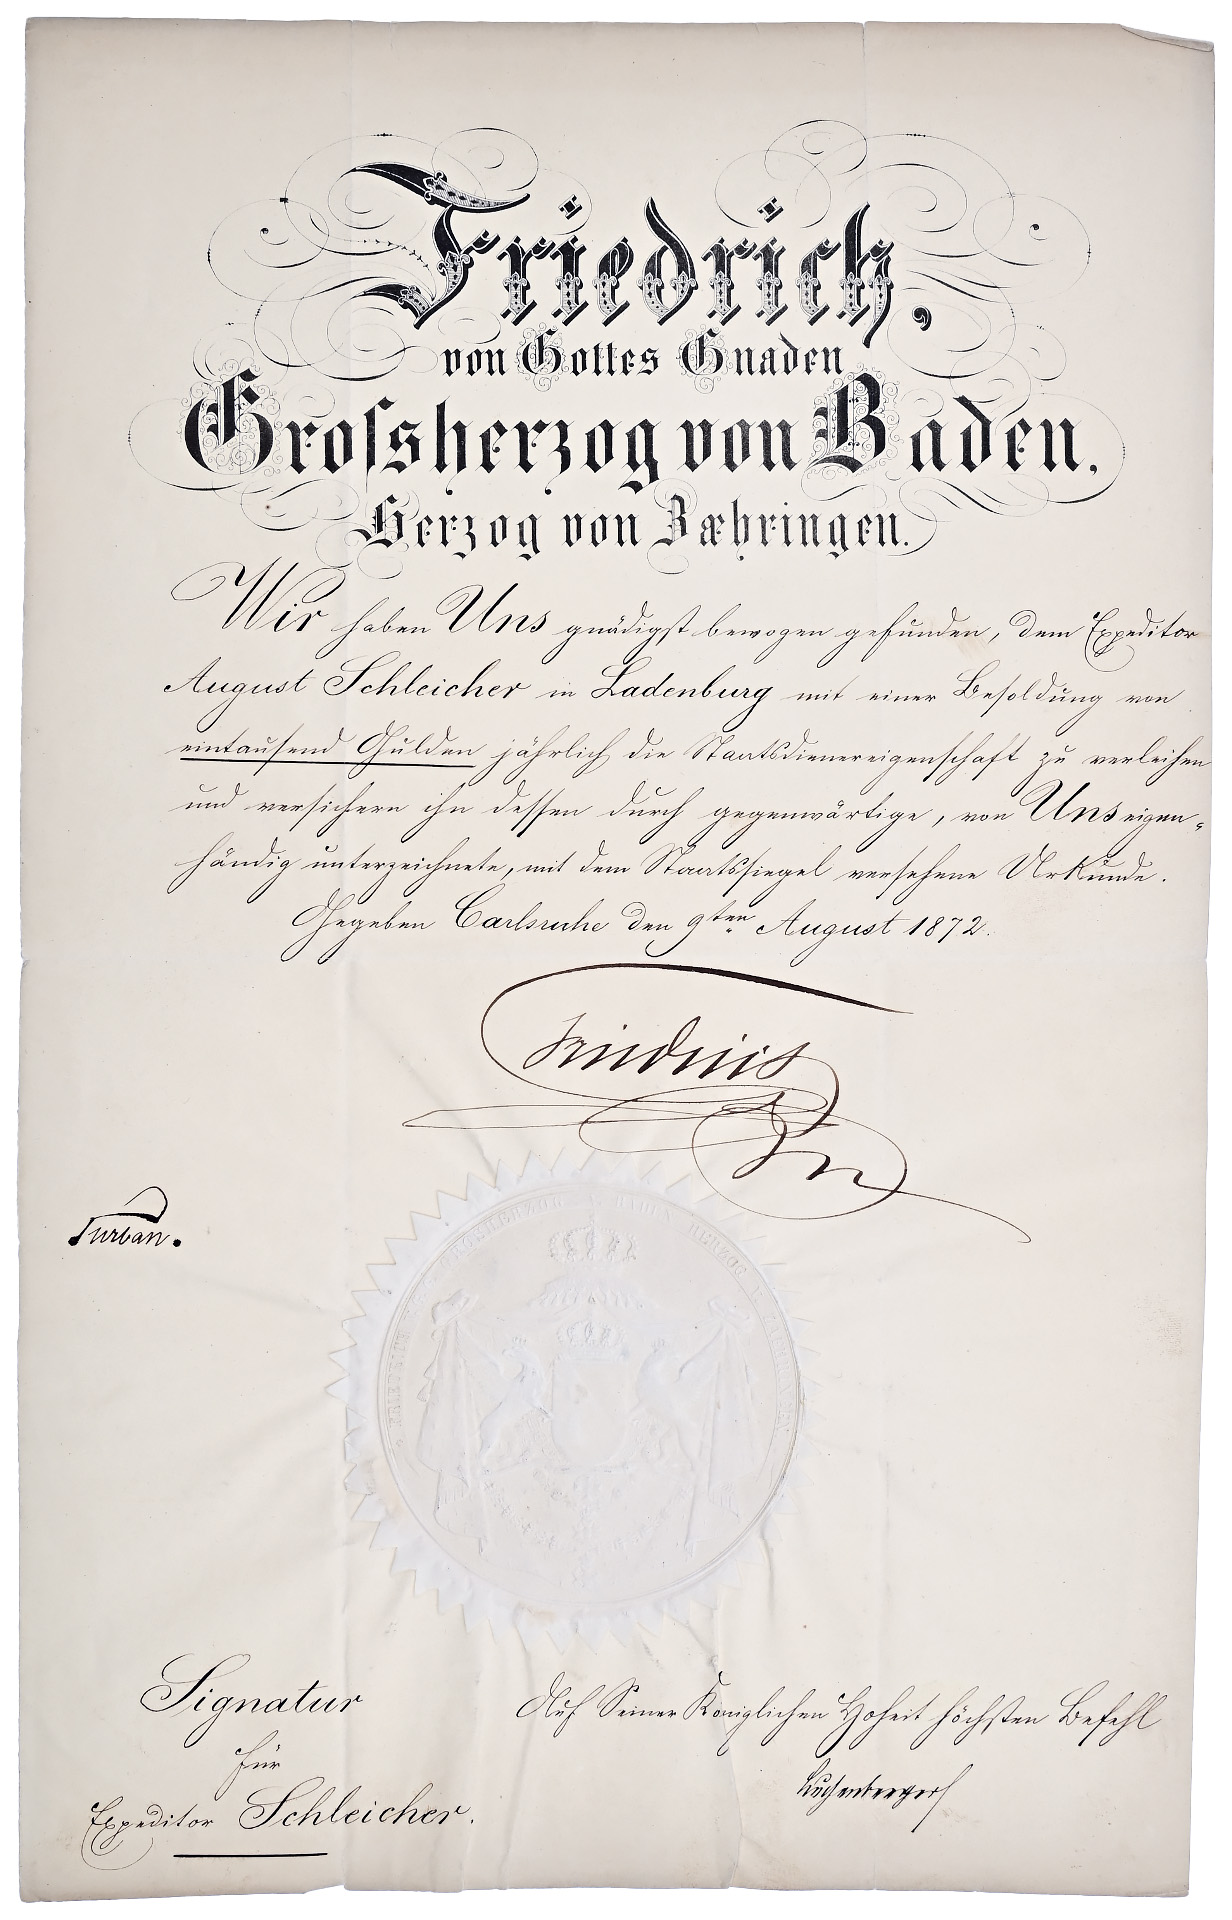 Friedrich,
von Gottes Gnaden
Grofsherzog von Baden,
Herzog von Zæhringen.
Wir haben Uns gnädigst bewogen gefunden, dem Expeditor
August Schleicher in Ladenburg mit einer Besoldung von
eintausend Gulden jährlich die Staatsdienereigenschaft zu verleihen
und versichern ihn dessen durch gegenwärtige, von Uns eigen-
händig unterzeichnete, mit dem Staatssiegel versehene Urkunde.
Gegeben Carlsruhe den 9ten August 1872.
Friedrich
Turban.
Signatur
für
Expeditor Schleicher.
Auf Seiner Königlichen Hoheit höchsten Befehl